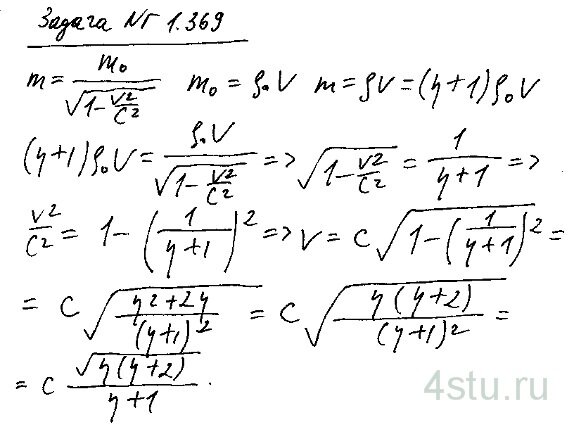 Задача № 1.369
m = m₀/√(1-v²/c²) m₀ = ρ₀V m = ρV = (η+1)ρ₀V
(η+1)ρ₀V = ρ₀V/√(1-v²/c²) => √(1-v²/c²) = 1/(η+1) =>
v²/c² = 1-(1/(η+1))² => v = c√(1-(1/(η+1))²) =
= c√((η²+2η)/(η+1)²) = c√(η(η+2)/(η+1)²) =
= c √(η(η+2))/(η+1).
4stu.ru